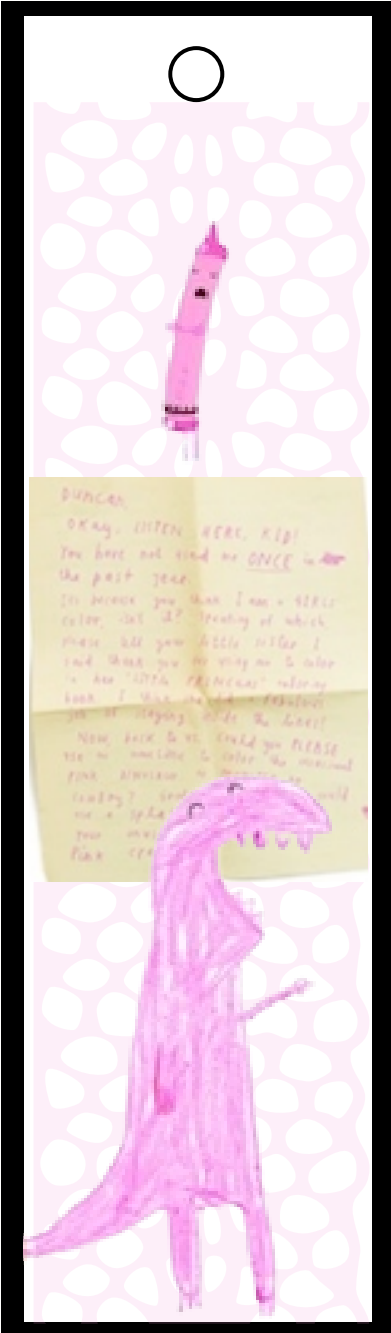 Duncan
Okay, LISTEN HERE, KID!
You have not used me ONCE in
the past year.
It's because you think I am a GIRLS'
color, isn't it? Speaking of which,
please tell your little sister I
said thank you for using me to color
in her "LITTLE PRINCESS" coloring
book. I think she did a fabulous
job of staying inside the lines!
Now, back to us. Could you PLEASE
use me sometime to color the occasional
pink dinosaur or
cowboy?
use a
your
Pink